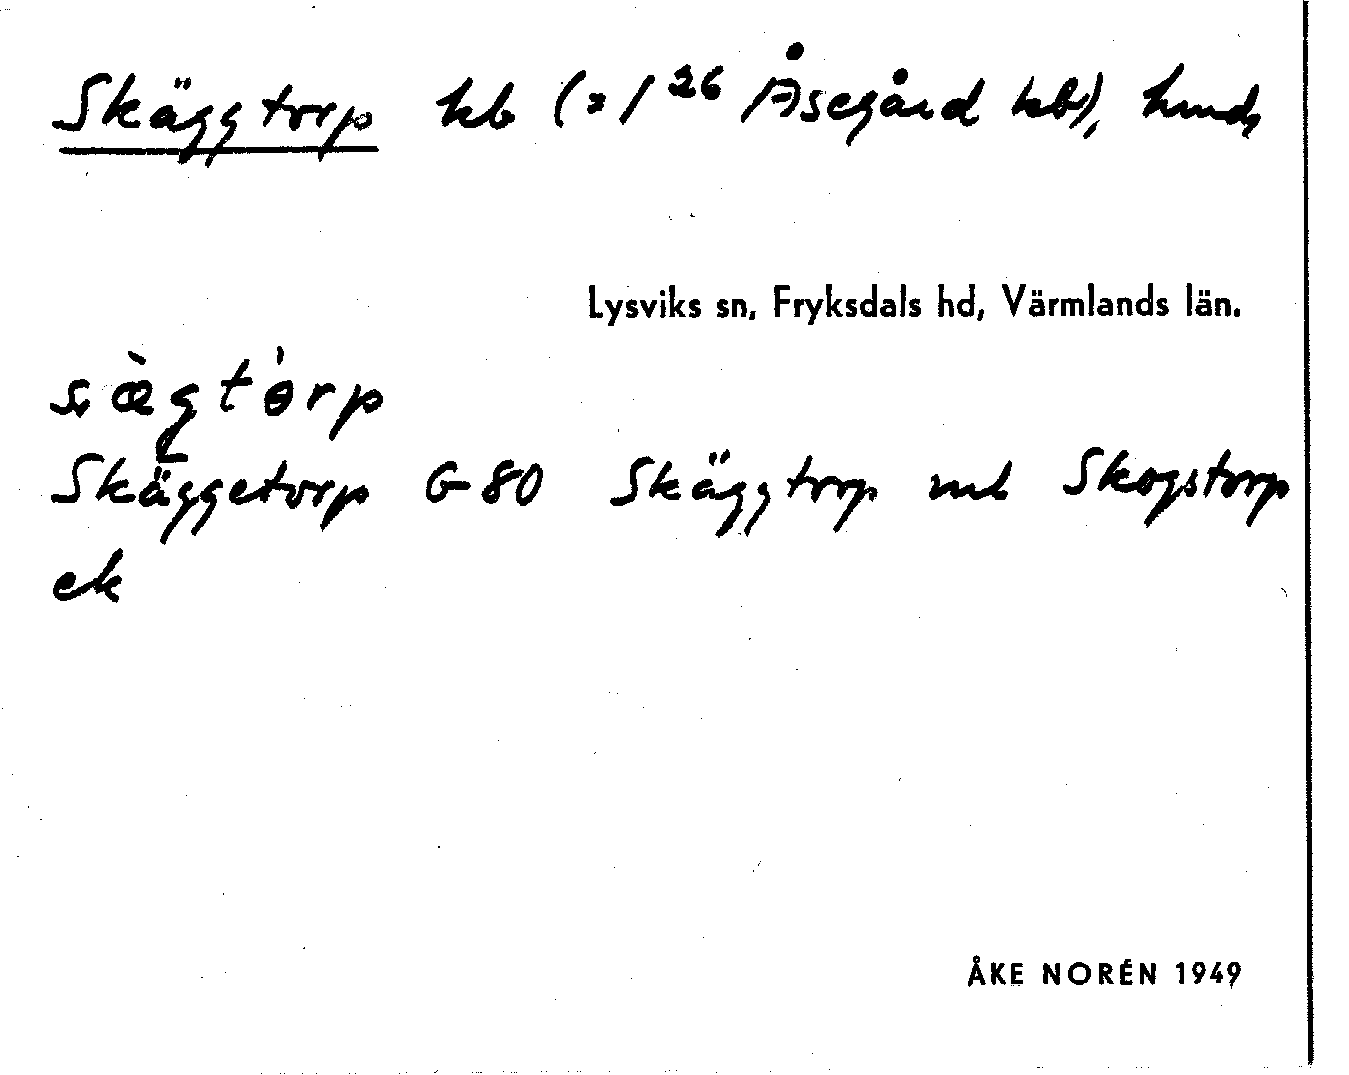 Skäggtorp hb (= 1²⁶ Åsegård hb), hmd,
Lysviks sn, Fryksdals hd, Värmlands län.
Skäggetorp G 80 Skäggtorp Skogstorp
ek
ÅKE NORÉN 1949